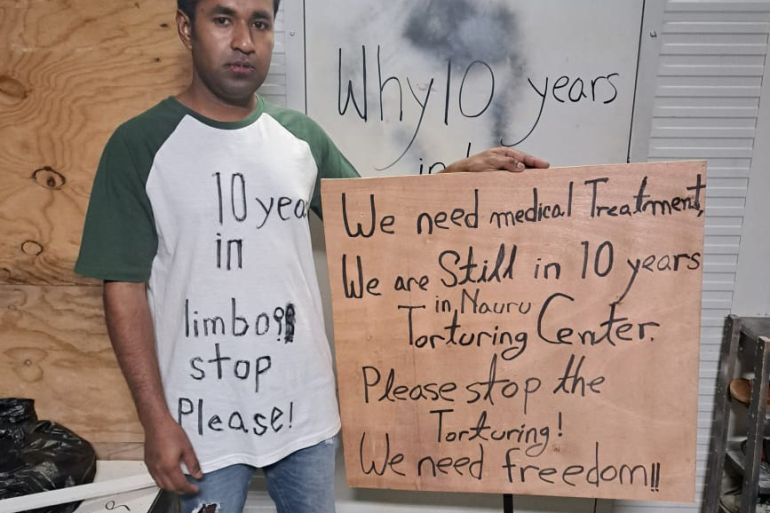 Why 10 years
in
10 yea
in
limbo?
stop
Please!
We need medical Treatment,
We are Still in 10 years
in Nauru
Torturing Center.
Please stop the
Torturing!
We need freedom!!